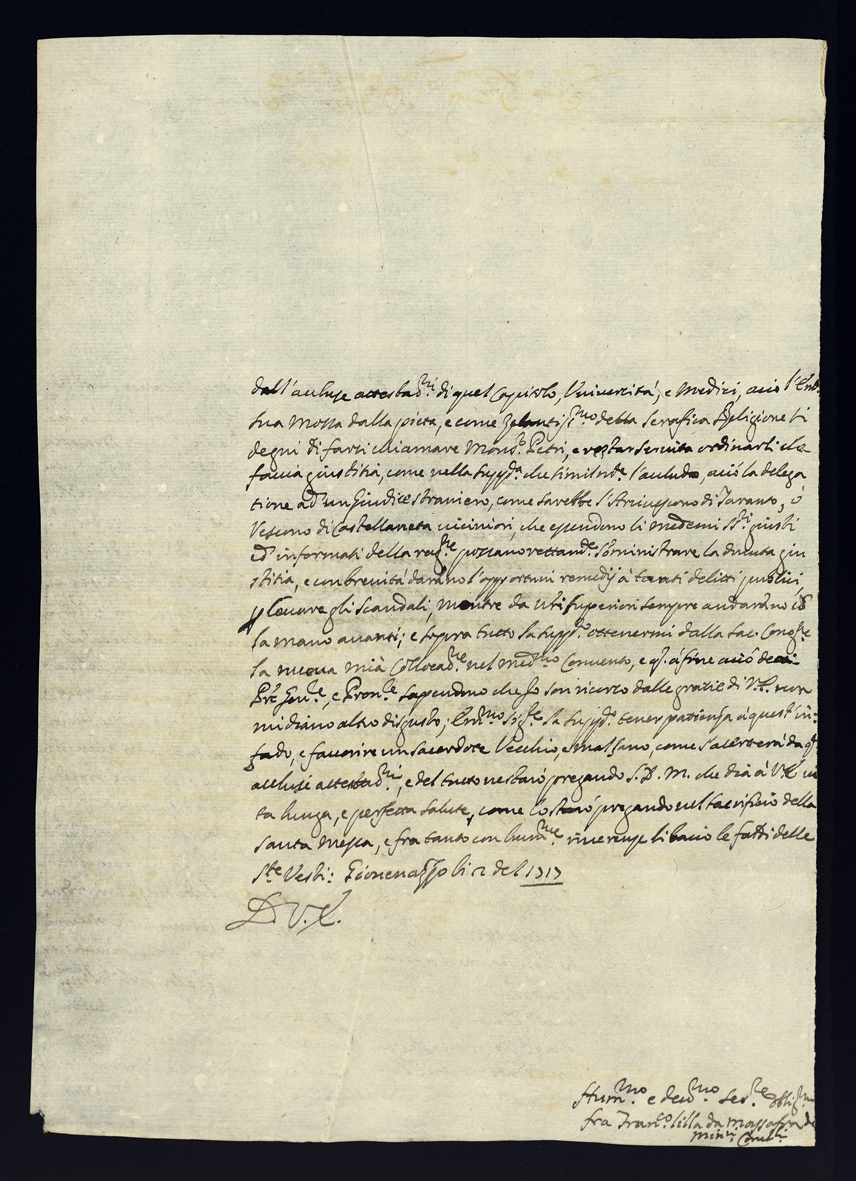 dall'accluse attestaõni di quel Capitolo, Università, e Medici, acciò l'Em.
sua mossa dalla pietà, e come Zelantissimo della Serafica Religione si
degni di farsi chiamare Mons.r Petri, e restar servita ordinarli che
faccia giustitia, come nella supp.ca che l'accludo, acciò la delega
tione ad un Giudice straniero, come sarebbe l'Arcivescovo di Taranto, ò
Vescovo di Castellaneta viciniori, che essendono li medemi SS.ri giusti
ed informati della possano somministrare la dovuta giu
stitia, e con brevità darãno l'opportuni remedij à tanti delitti publici,
p levare gli scandali, mentre da superiori sempre andarãno cõ
la mano avanti; e sopra tutto la supp.co ottenermi dalla Sac. Cong.ne
la nuova mià Collocaõne nel med.mo Convento, e q.o à fine acciò
P.re Gen.le, e Prov.le sapendono che fo son ricorso dalle gratie di V.E. non
mi diano altro disgusto; Em.mo Sig.re la supp.co tener patienza à quest'in
fado, e favorire un sacerdote Vecchio, e mal sano, come s'accerterà da q.e
accluse attestaõni, e del tutto restarò pregando S.D.M. che dia à V.E. vi
ta lunga, e perfetta salute, come lo starò pregando nel sacrificio della
santa messa, e fra tanto con hum.me riverenze li bacio le faldi delle
S.te Vesti: Giovenazzo li 2 del 1717
D. V. E.
Hum.mo e dev.mo Ser.re obblig.mo
fra Fran.co lilla da Massafra de
Min.ri Conv.li